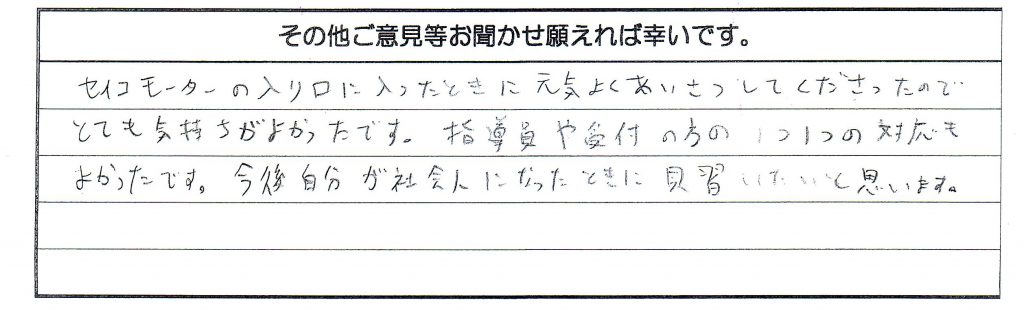 その他ご意見等お聞かせ願えれば幸いです。
セイコモーターの入り口に入ったときに元気よくあいさつしてくださったので
とても気持ちがよかったです。指導員や受付の方の1つ1つの対応も
よかったです。今後自分が社会人になったときに見習いたいと思います。